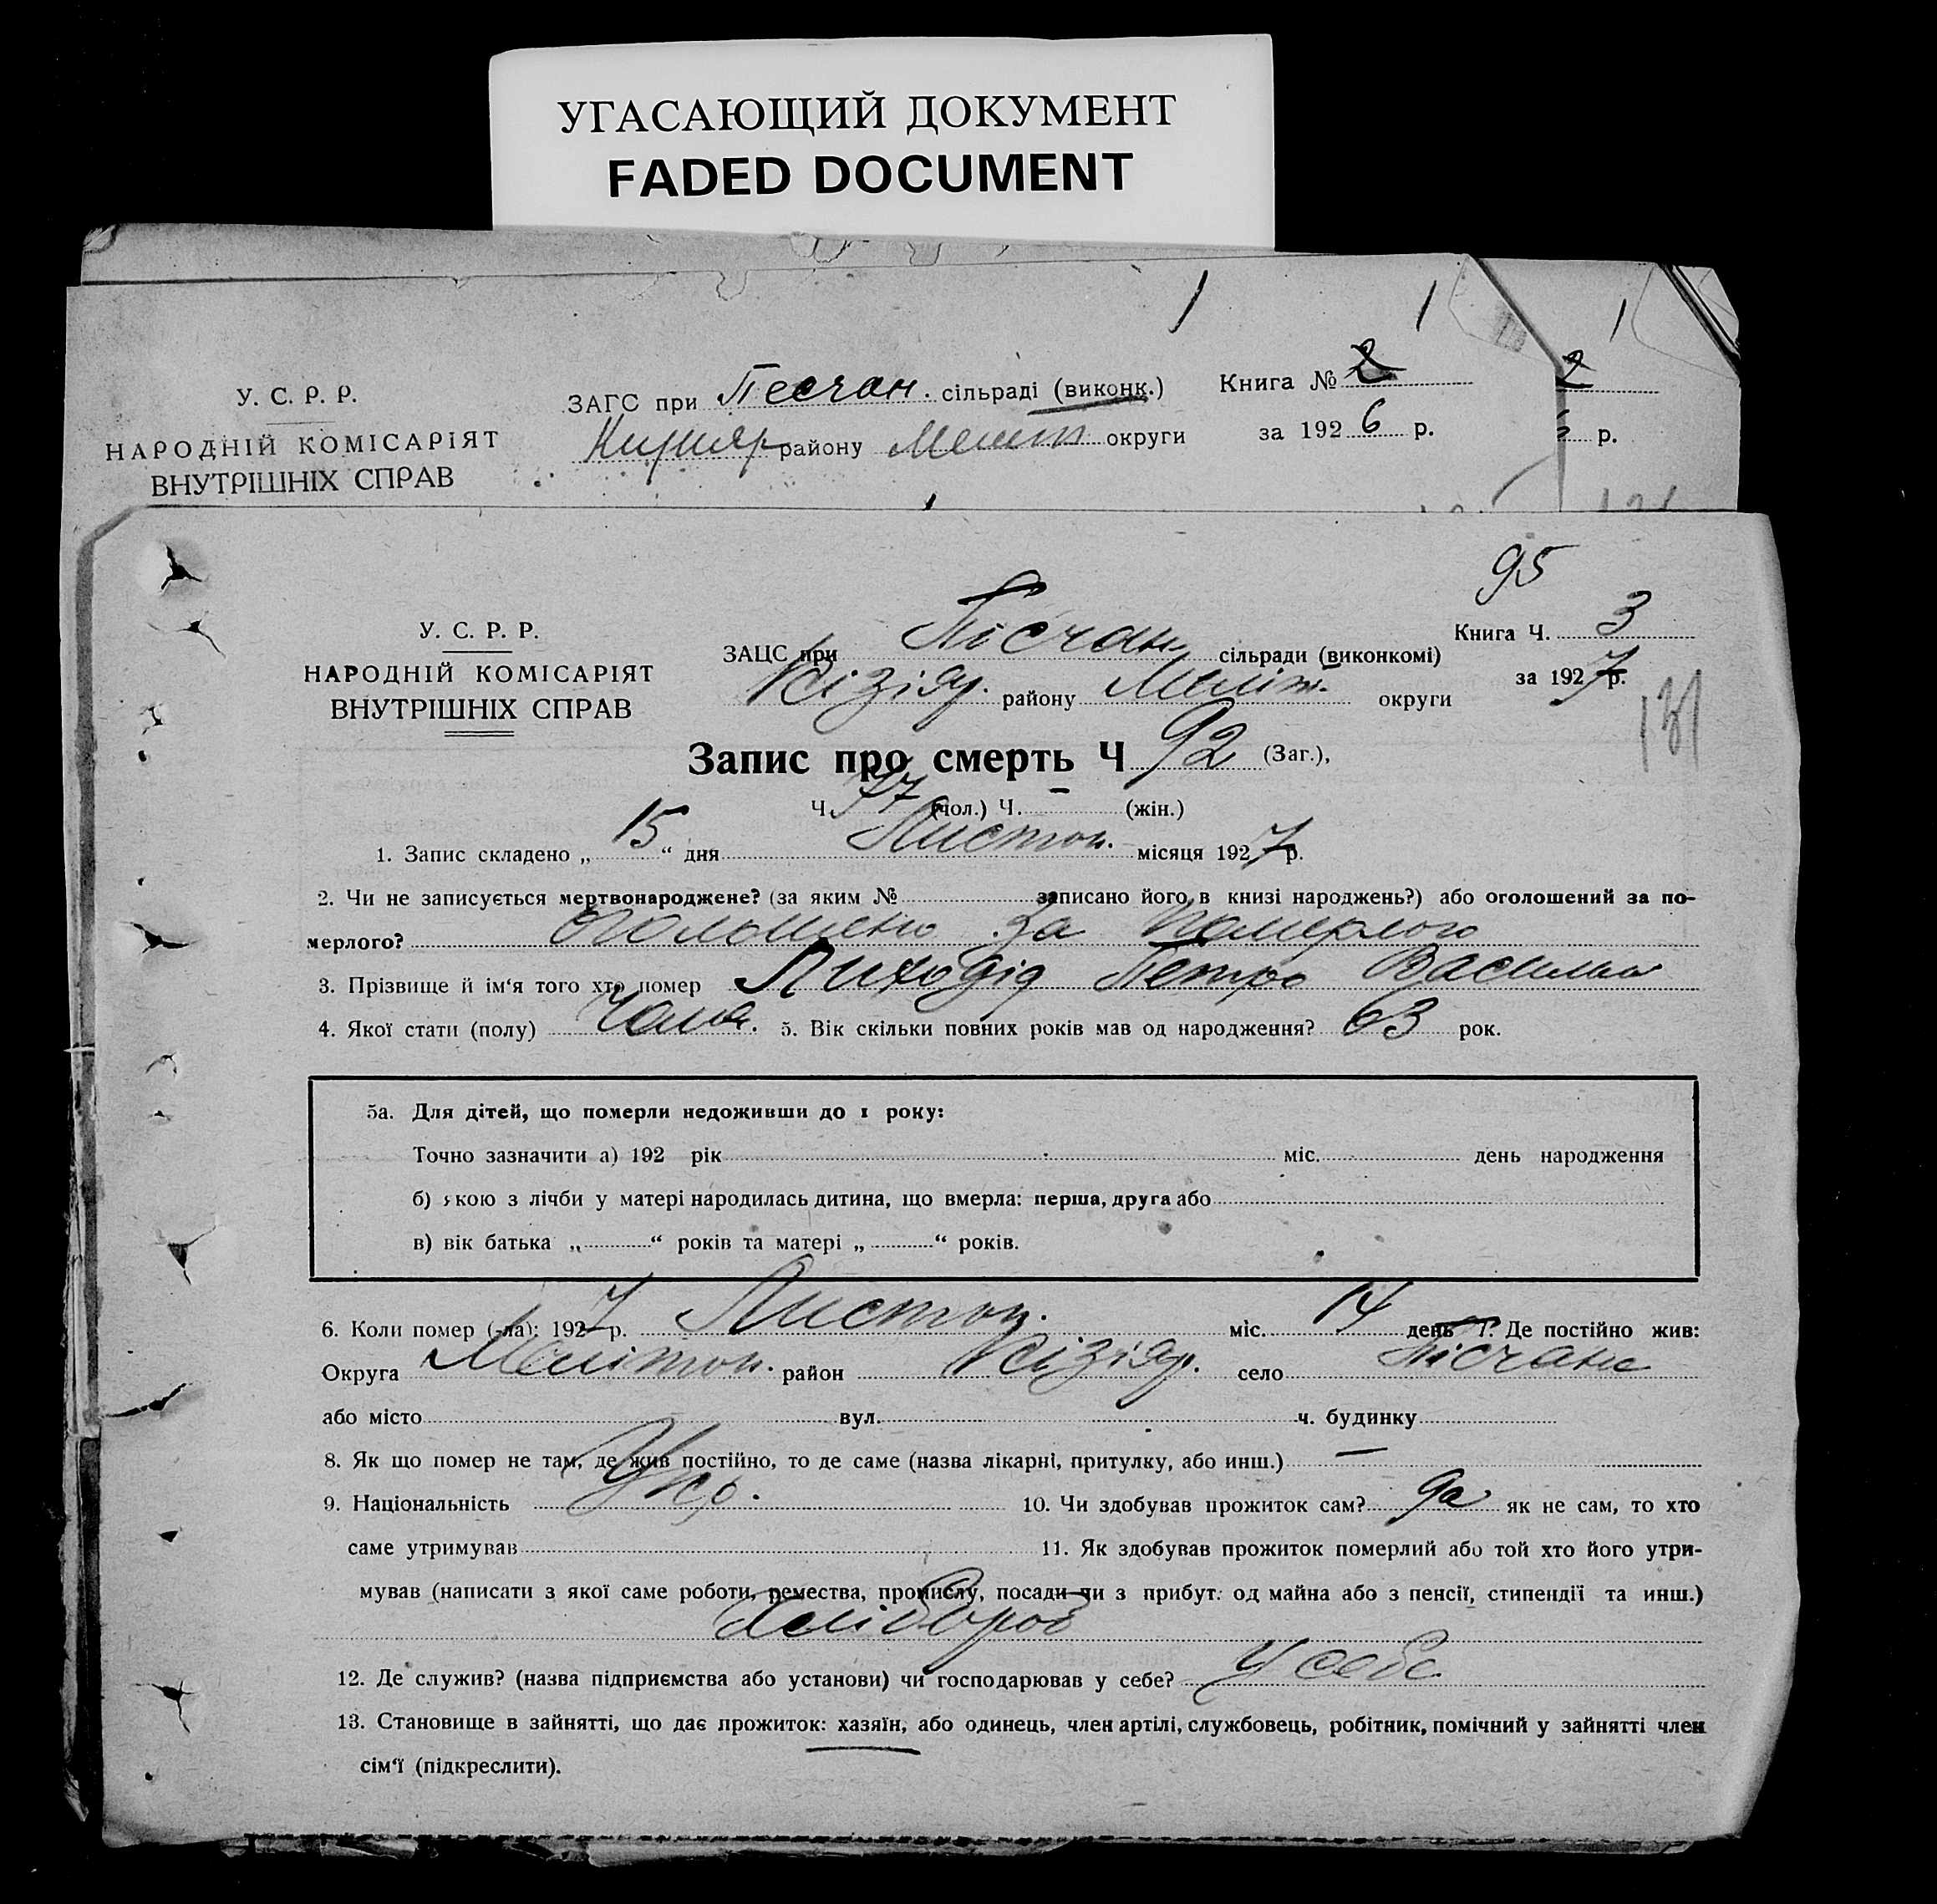 УГАСАЮЩИЙ ДОКУМЕНТ
FADED DOCUMENT
1 1 1
У. С. Р. Р.
НАРОДНІЙ КОМІСАРІЯТ
ВНУТРІШНІХ СПРАВ
ЗАГС при Песчан. сільраді (виконк.) Книга № 2
району Мелит округи за 1926 р.
2
р.
95
У. С. Р. Р.
НАРОДНІЙ КОМІСАРІЯТ
ВНУТРІШНІХ СПРАВ
ЗАЦС при Пісчан. сільради (виконкомі) Книга Ч. 3
Кізіяр. району Меліт. округи за 1927 р.
131
Запис про смерть Ч 92 (Заг.),
Ч. 47 (чол.) Ч. – (жін.)
1. Запис складено „ 15 “ дня Листоп. місяця 1927 р.
2. Чи не записується мертвонароджене? (за яким № записано його в книзі народжень?) або оголошений за по-
мерлого? Оголошено за померлого
3. Прізвище й ім‘я того хто помер Лиходід Петро Василів
4. Якої стати (полу) Чолов. 5. Вік скільки повних років мав од народження? 63 рок.
5а. Для дітей, що померли недоживши до 1 року:
Точно зазначити а) 192 рік міс. день народження
б) якою з лічби у матері народилась дитина, що вмерла: перша, друга або
в) вік батька „ “ років та матері „ “ років.
6. Коли помер (-ла): 1927 р. Листоп. міс. 14 день 7. Де постійно жив:
Округа Мелітоп. район Кізіяр. село Пісчане
або місто вул. ч. будинку
8. Як що помер не там, де жив постійно, то де саме (назва лікарні, притулку, або инш.) –
9. Національність Укр. 10. Чи здобував прожиток сам? да як не сам, то хто
саме утримував 11. Як здобував прожиток померлий або той хто його утри-
мував (написати з якої саме роботи, ремества, промислу, посади чи з прибут. од майна або з пенсії, стипендії та инш.)
Хлібороб
12. Де служив? (назва підприємства або установи) чи господарював у себе? У себе
13. Становище в зайнятті, що дає прожиток: хазяїн, або одинець, член артілі, службовець, робітник, помічний у зайнятті член
сім‘ї (підкреслити).